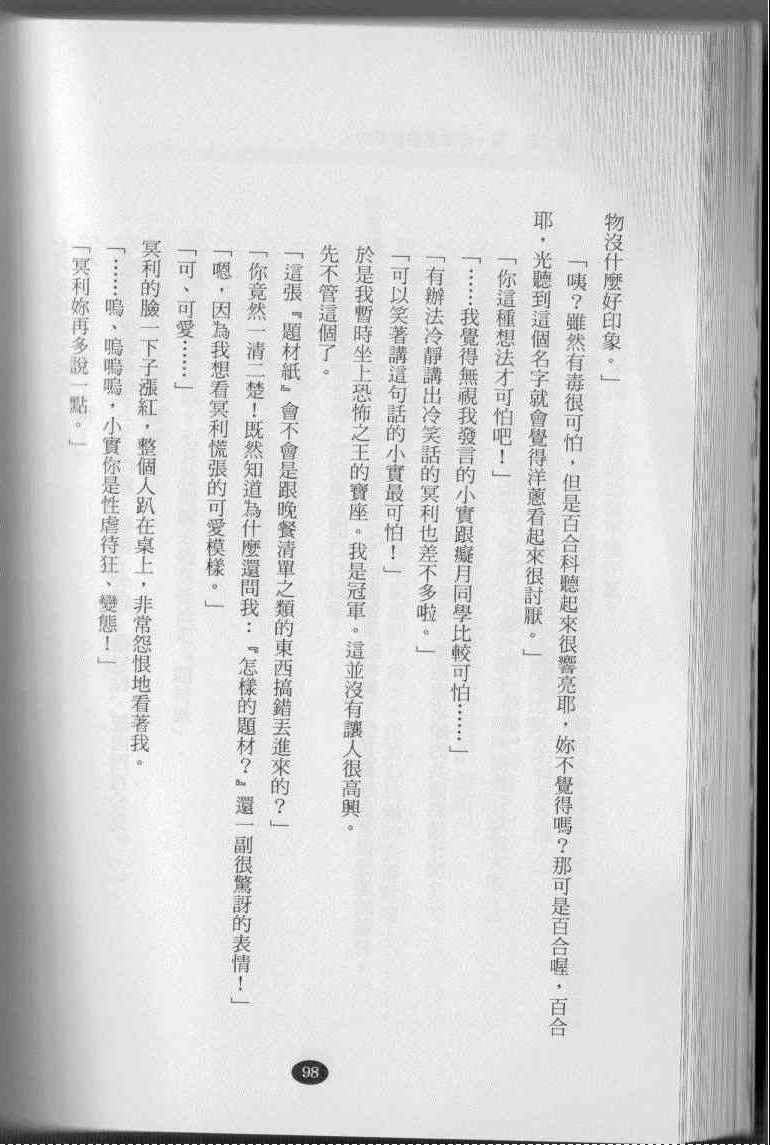 物沒什麼好印象。」
「咦？雖然有毒很可怕，但是百合科聽起來很響亮耶，妳不覺得嗎？那可是百合喔，百合
耶，光聽到這個名字就會覺得洋蔥看起來很討厭。」
「你這種想法才可怕吧！」
「……我覺得無視我發言的小實跟癡月同學比較可怕……」
「有辦法冷靜講出冷笑話的冥利也差不多啦。」
「可以笑著講這句話的小實最可怕！」
於是我暫時坐上恐怖之王的寶座。我是冠軍。這並沒有讓人很高興。
先不管這個了。
「這張『題材紙』會不會是跟晚餐清單之類的東西搞錯丟進來的？」
「你竟然一清二楚！既然知道為什麼還問我：『怎樣的題材？』還一副很驚訝的表情！」
「嗯，因為我想看冥利慌張的可愛模樣。」
「可、可愛……」
冥利的臉一下子漲紅，整個人趴在桌上，非常怨恨地看著我。
「……嗚、嗚嗚嗚，小實你是性虐待狂、變態！」
「冥利妳再多說一點。」
98